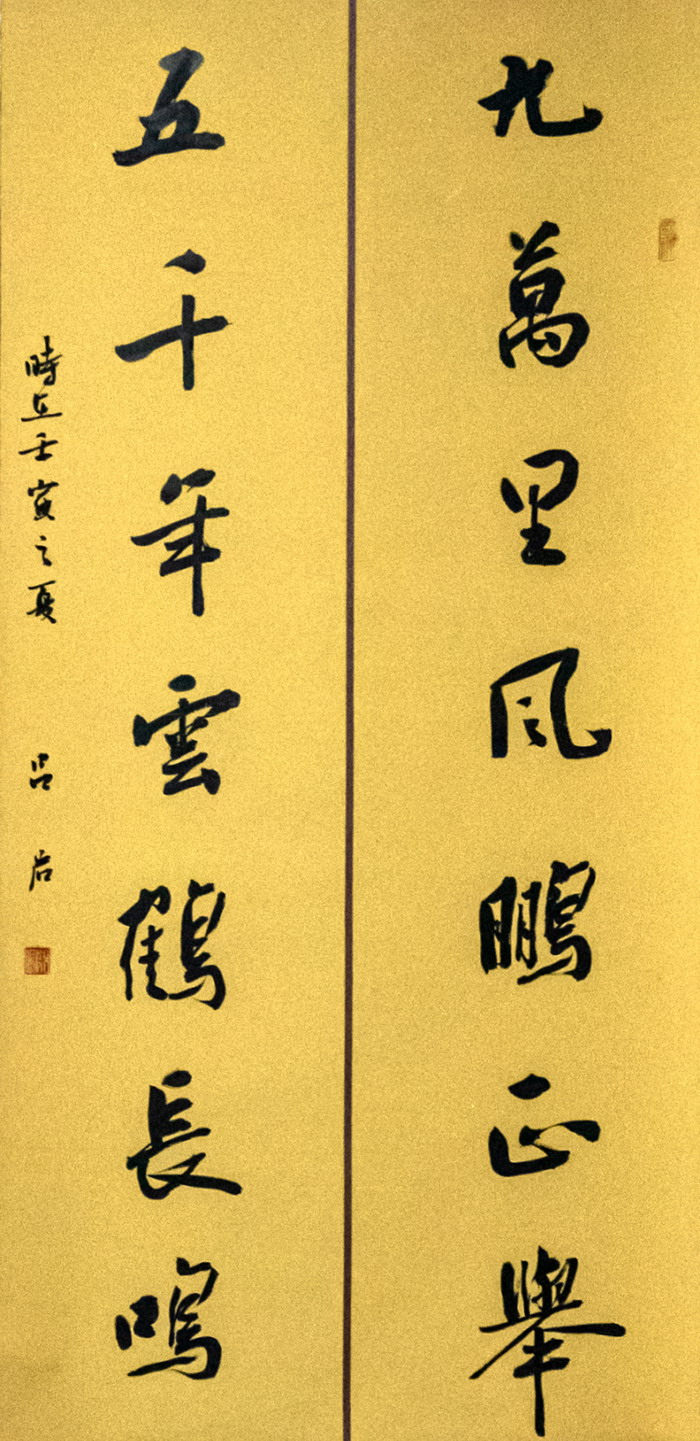 九萬里风鵬正舉
五千年雲鶴長鳴
時在壬寅之夏
吕后